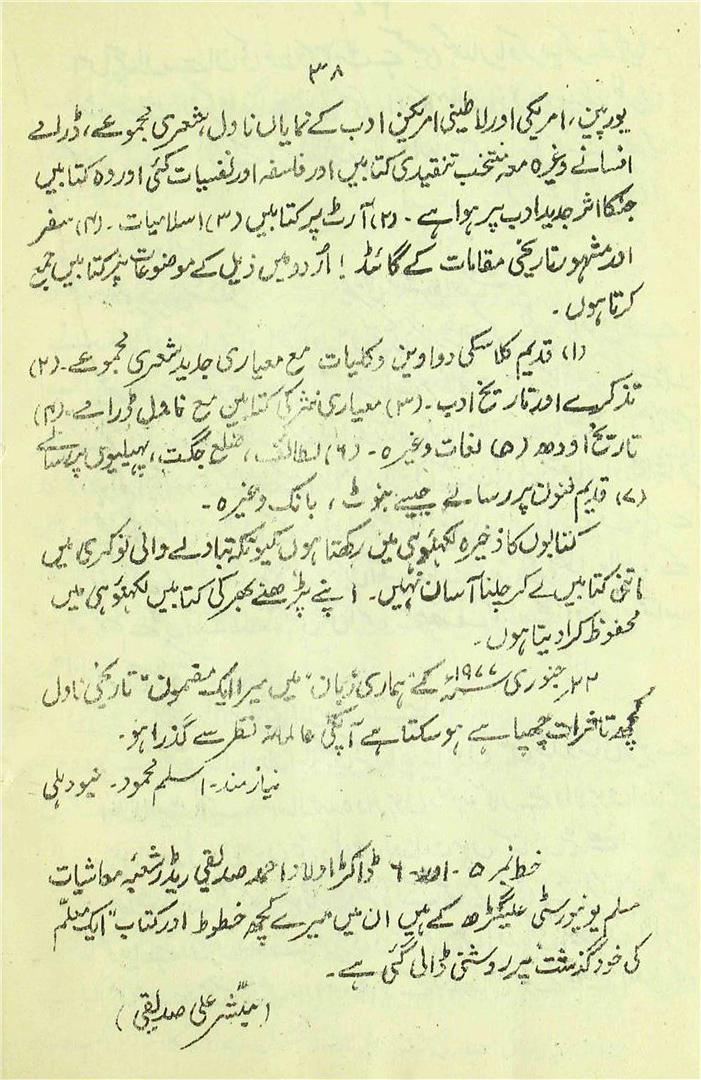 ۳۸
یورپین، امریکی اور لاطینی امریکن ادب کے نمایاں ناول، شعری مجموعے، ڈرامے
افسانے وغیرہ معہ منتخب تنقیدی کتابیں اور فلسفہ اور نفسیات کئی اور وہ کتابیں
جنکا اثر جدید ادب پر ہوا ہے ۔ (۲) آرٹ پر کتابیں (۳) اسلامیات ۔ (۴) سفر
اور مشہور تاریخی مقامات کے گائڈ ! اُردو میں ذیل کے موضوعات پر کتابیں جمع
کرتا ہوں ۔
(۱) قدیم کلاسکی دواوین وکلیات مع معیاری جدید شعری مجموعے ۔ (۲)
تذکرے اور تاریخ ادب ۔ (۳) معیاری نثر کی کتابیں مع ناول ڈرامے ۔ (۴)
تاریخ اودھ (۵) لغات وغیرہ ۔ (۶) لطائف، ضلع جگت، پہیلیوں پر رسالے
(۷) قدیم فنون پر رسالے جیسے بنوٹ ، بانک وغیرہ ۔
کتابوں کا ذخیرہ لکھنؤ ہی میں رکھتا ہوں کیونکہ تبادلے والی نوکری میں
اتنی کتابیں لے کر چلنا آسان نہیں ۔ اپنے پڑھنے بھر کی کتابیں لکھنؤ ہی میں
محفوظ کرا دیتا ہوں ۔
۲۲؍ جنوری ۱۹۷۷ء کے "ہماری زبان" میں میرا ایک مضمون "تاریخی ناول
کچھ تاثرات چھپا ہے ہو سکتا ہے آپکی عالمانہ نظر سے گذرا ہو ۔
نیازمند ۔ اسلم محمود ۔ نیو دہلی
خط نمبر ۵ ۔ اور ۔ ۶ ڈاکٹر اولاد احمد صدیقی ریڈر شعبہ معاشیات
مسلم یونیورسٹی علیگڑھ کے ہیں ان میں میرے کچھ خطوط اور کتاب "ایک معلّم
کی خود گذشت" پر روشنی ڈالی گئی ہے ۔
(مبشر علی صدیقی)